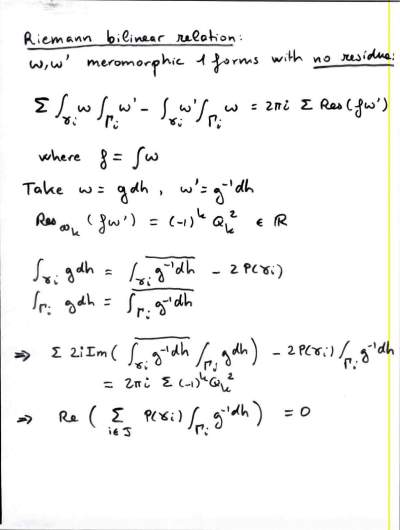 Riemann bilinear relation:
ω, ω' meromorphic 1 forms with no residue:
Σ ∫_{γi} ω ∫_{Γi} ω' - ∫_{γi} ω' ∫_{Γi} ω = 2πi Σ Res(fω')
where f = ∫ω
Take ω = gdh, ω' = g⁻¹dh
Res_{∞k} (fω') = (-1)^k Q_k² ∈ ℝ
∫_{γi} gdh = \overline{∫_{γi} g⁻¹dh} - 2P(γi)
∫_{Γi} gdh = \overline{∫_{Γi} g⁻¹dh}
⇒ Σ 2i Im( \overline{∫_{γi} g⁻¹dh} ∫_{Γj} gdh ) - 2P(γi) ∫_{Γi} g⁻¹dh
= 2πi Σ (-1)^k Q_k²
⇒ Re ( Σ_{i∈J} P(γi) ∫_{Γi} g⁻¹dh ) = 0